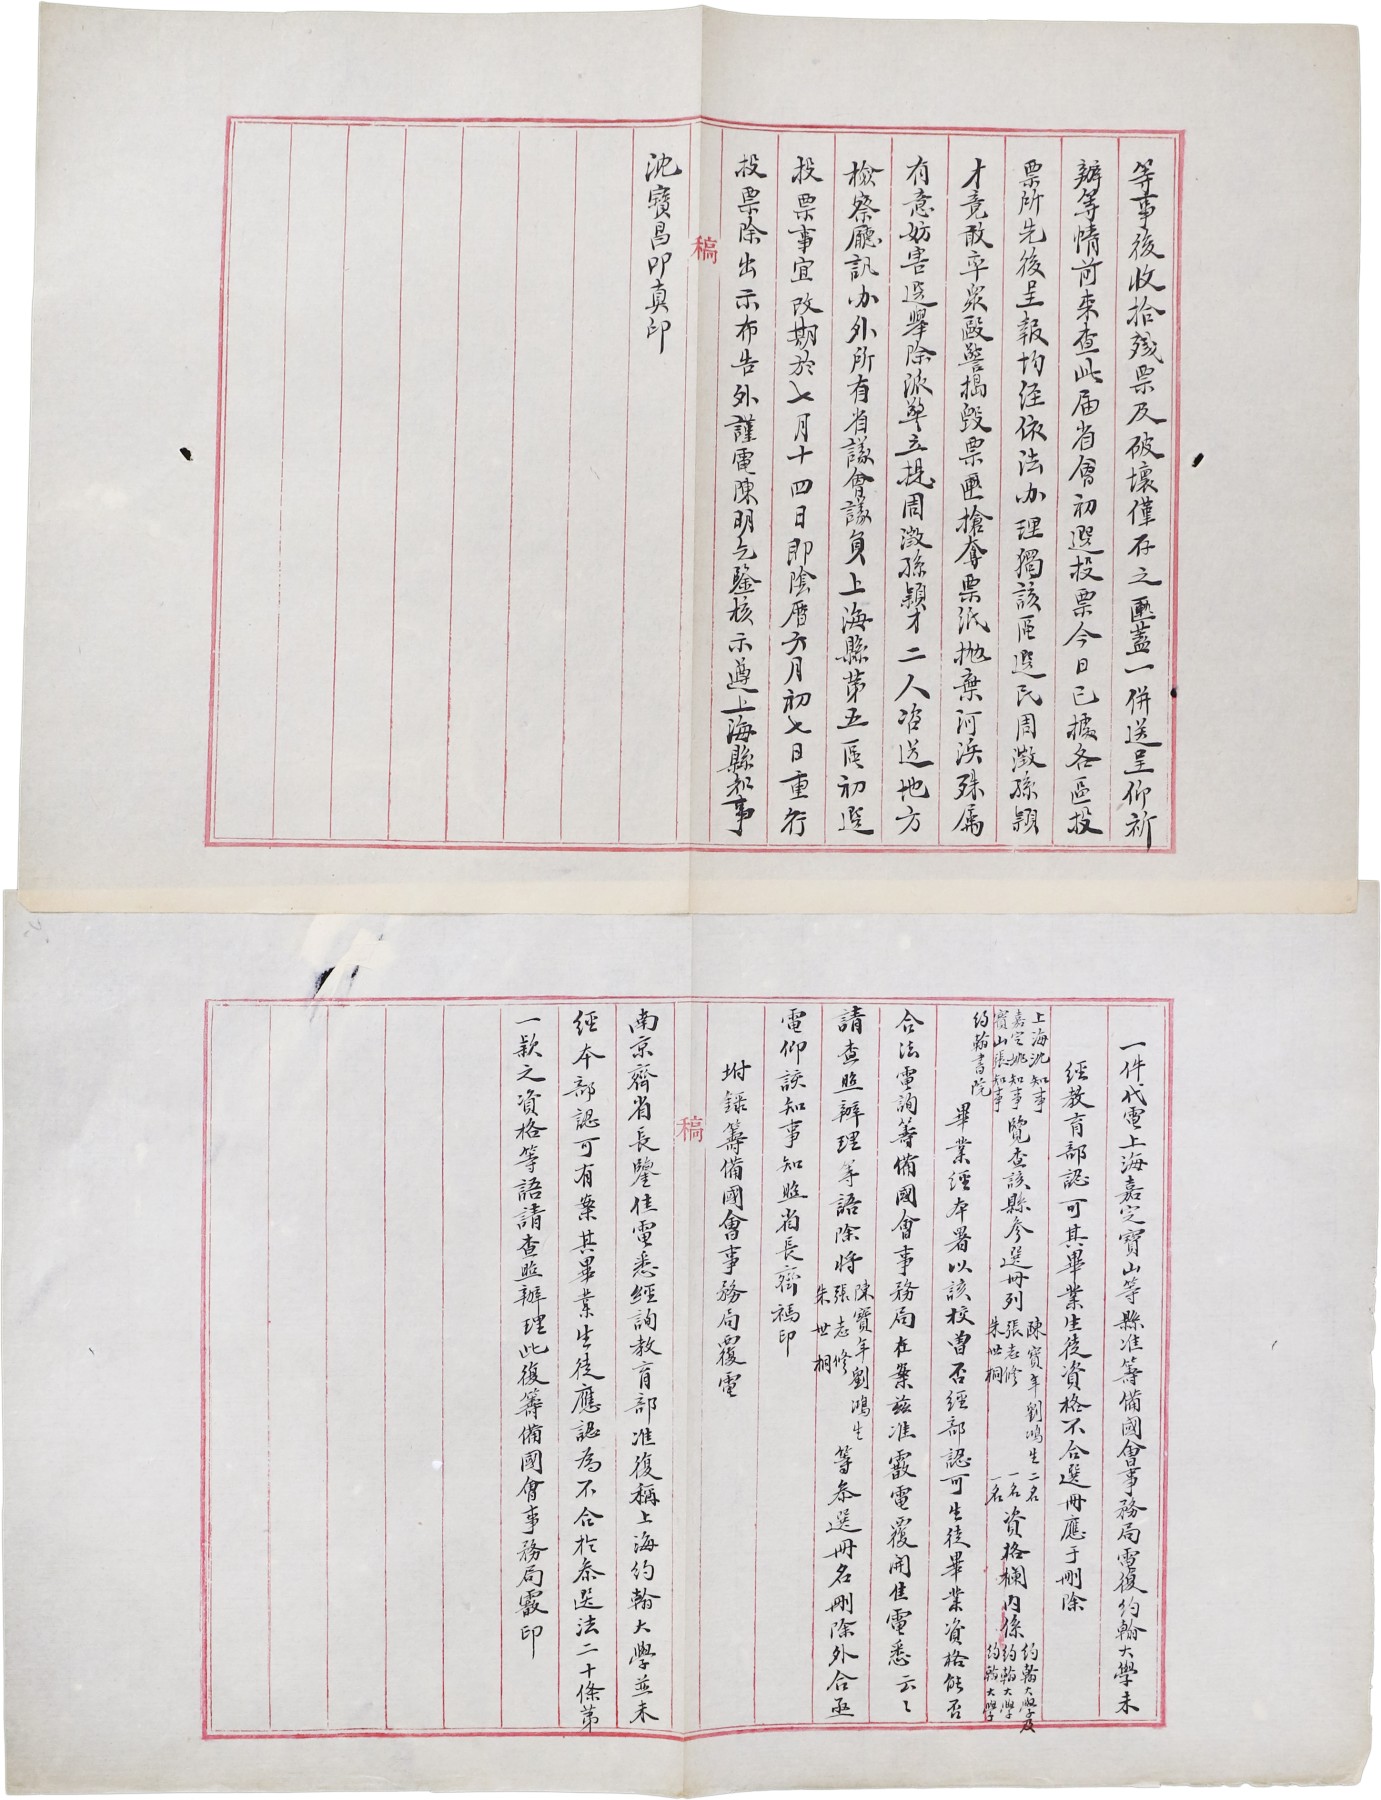 等事後收拾殘票及破壞僅存之匭蓋一併送呈仰祈
辦等情前來查此届省會初選投票今日已據各區投
票所先後呈報均經依法办理獨該區選民周澂孫穎
才竟敢率衆毆警搗毀票匭搶奪票紙抛棄河浜殊屬
有意妨害選舉除派警立提周澂孫穎才二人咨送地方
檢察廳訊办外所有省議會議員上海縣第五區初選
投票事宜改期於七月十四日即陰曆六月初七日重行
投票除出示布告外謹電陳明乞鑒核示遵上海縣知事
沈寶昌叩真印
稿
一件代電上海嘉定寶山等縣准籌備國會事務局電復約翰大學未
經教育部認可其畢業生徒資格不合選冊應于刪除
上海沈知事
嘉定姚知事
寶山張知事
覽查該縣參選冊列
陳寶年劉鴻生二名
張志修一名
朱世桐一名
資格欄内係
約翰大學及
約翰大學
約翰大學
約翰書院
畢業經本署以該校曾否經部認可生徒畢業資格能否
合法電詢籌備國會事務局在案茲准霰電覆開佳電悉云云
請查照辦理等語除將
陳寶年劉鴻生
張志修
朱世桐
等參選冊名刪除外合亟
電仰該知事知照省長齊禡印
坿錄籌備國會事務局覆電
稿
南京齊省長鑒佳電悉經詢教育部准復稱上海約翰大學並未
經本部認可有案其畢業生徒應認為不合於參選法二十條第
一款之資格等語請查照辦理此復籌備國會事務局霰印